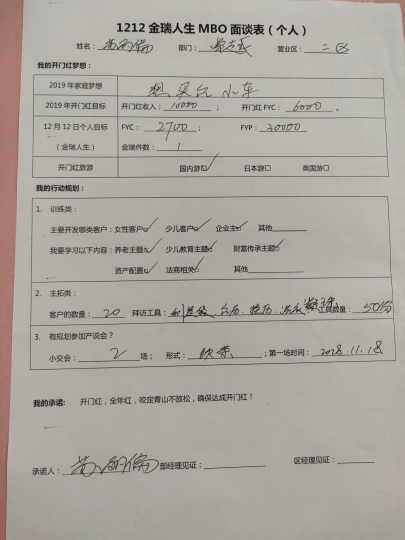 1212 金瑞人生 MBO 面谈表（个人）
姓名： 部门： 营业区： 二区
我的开门红梦想：
2019 年家庭梦想 想买台小车
2019 年开门红目标 开门红收入： 10000 ； 开门红 FYC： 6000 。
12 月 12 日个人目标 FYC： 2700 ； FYP： 30000
（金瑞人生） 金瑞件数： 1
开门红旅游 国内游☑ 日本游□ 英国游□
我的行动规划：
1. 训练类：
主要开发哪类客户：女性客户☑ 少儿客户☑ 企业主☑ 其他
我要学习以下内容：养老主题☑ 少儿教育主题☑ 财富传承主题☑
资产配置☑ 法商相关☑ 其他
2. 主拓类：
客户的数量： 20 拜访工具： 台历、挂历、 工具数量： 50份
3. 有规划参加产说会？
小交会： 2 场； 形式： ；第一场时间： 2018.11.18
我的承诺： 开门红，全年红，咬定青山不放松，确保达成开门红！
承诺人： 部经理见证： 区经理见证：